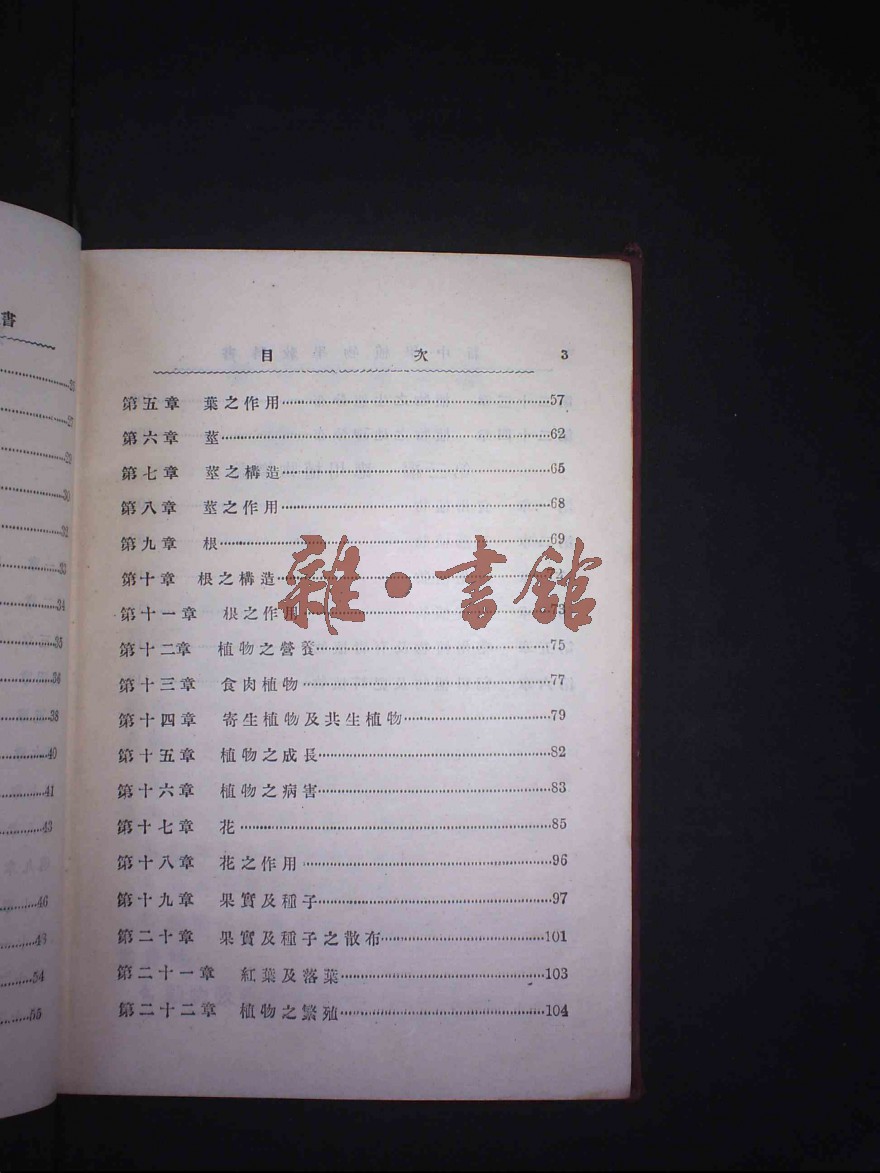 書
21
27
29
30
32
33
34
35
36
38
40
41
43
46
48
54
55
目 次 3
第五章 葉之作用 57
第六章 莖 62
第七章 莖之構造 65
第八章 莖之作用 68
第九章 根 69
第十章 根之構造
第十一章 根之作用 73
第十二章 植物之營養 75
第十三章 食肉植物 77
第十四章 寄生植物及共生植物 79
第十五章 植物之成長 82
第十六章 植物之病害 83
第十七章 花 85
第十八章 花之作用 96
第十九章 果實及種子 97
第二十章 果實及種子之散布 101
第二十一章 紅葉及落葉 103
第二十二章 植物之繁殖 104
雜·書館